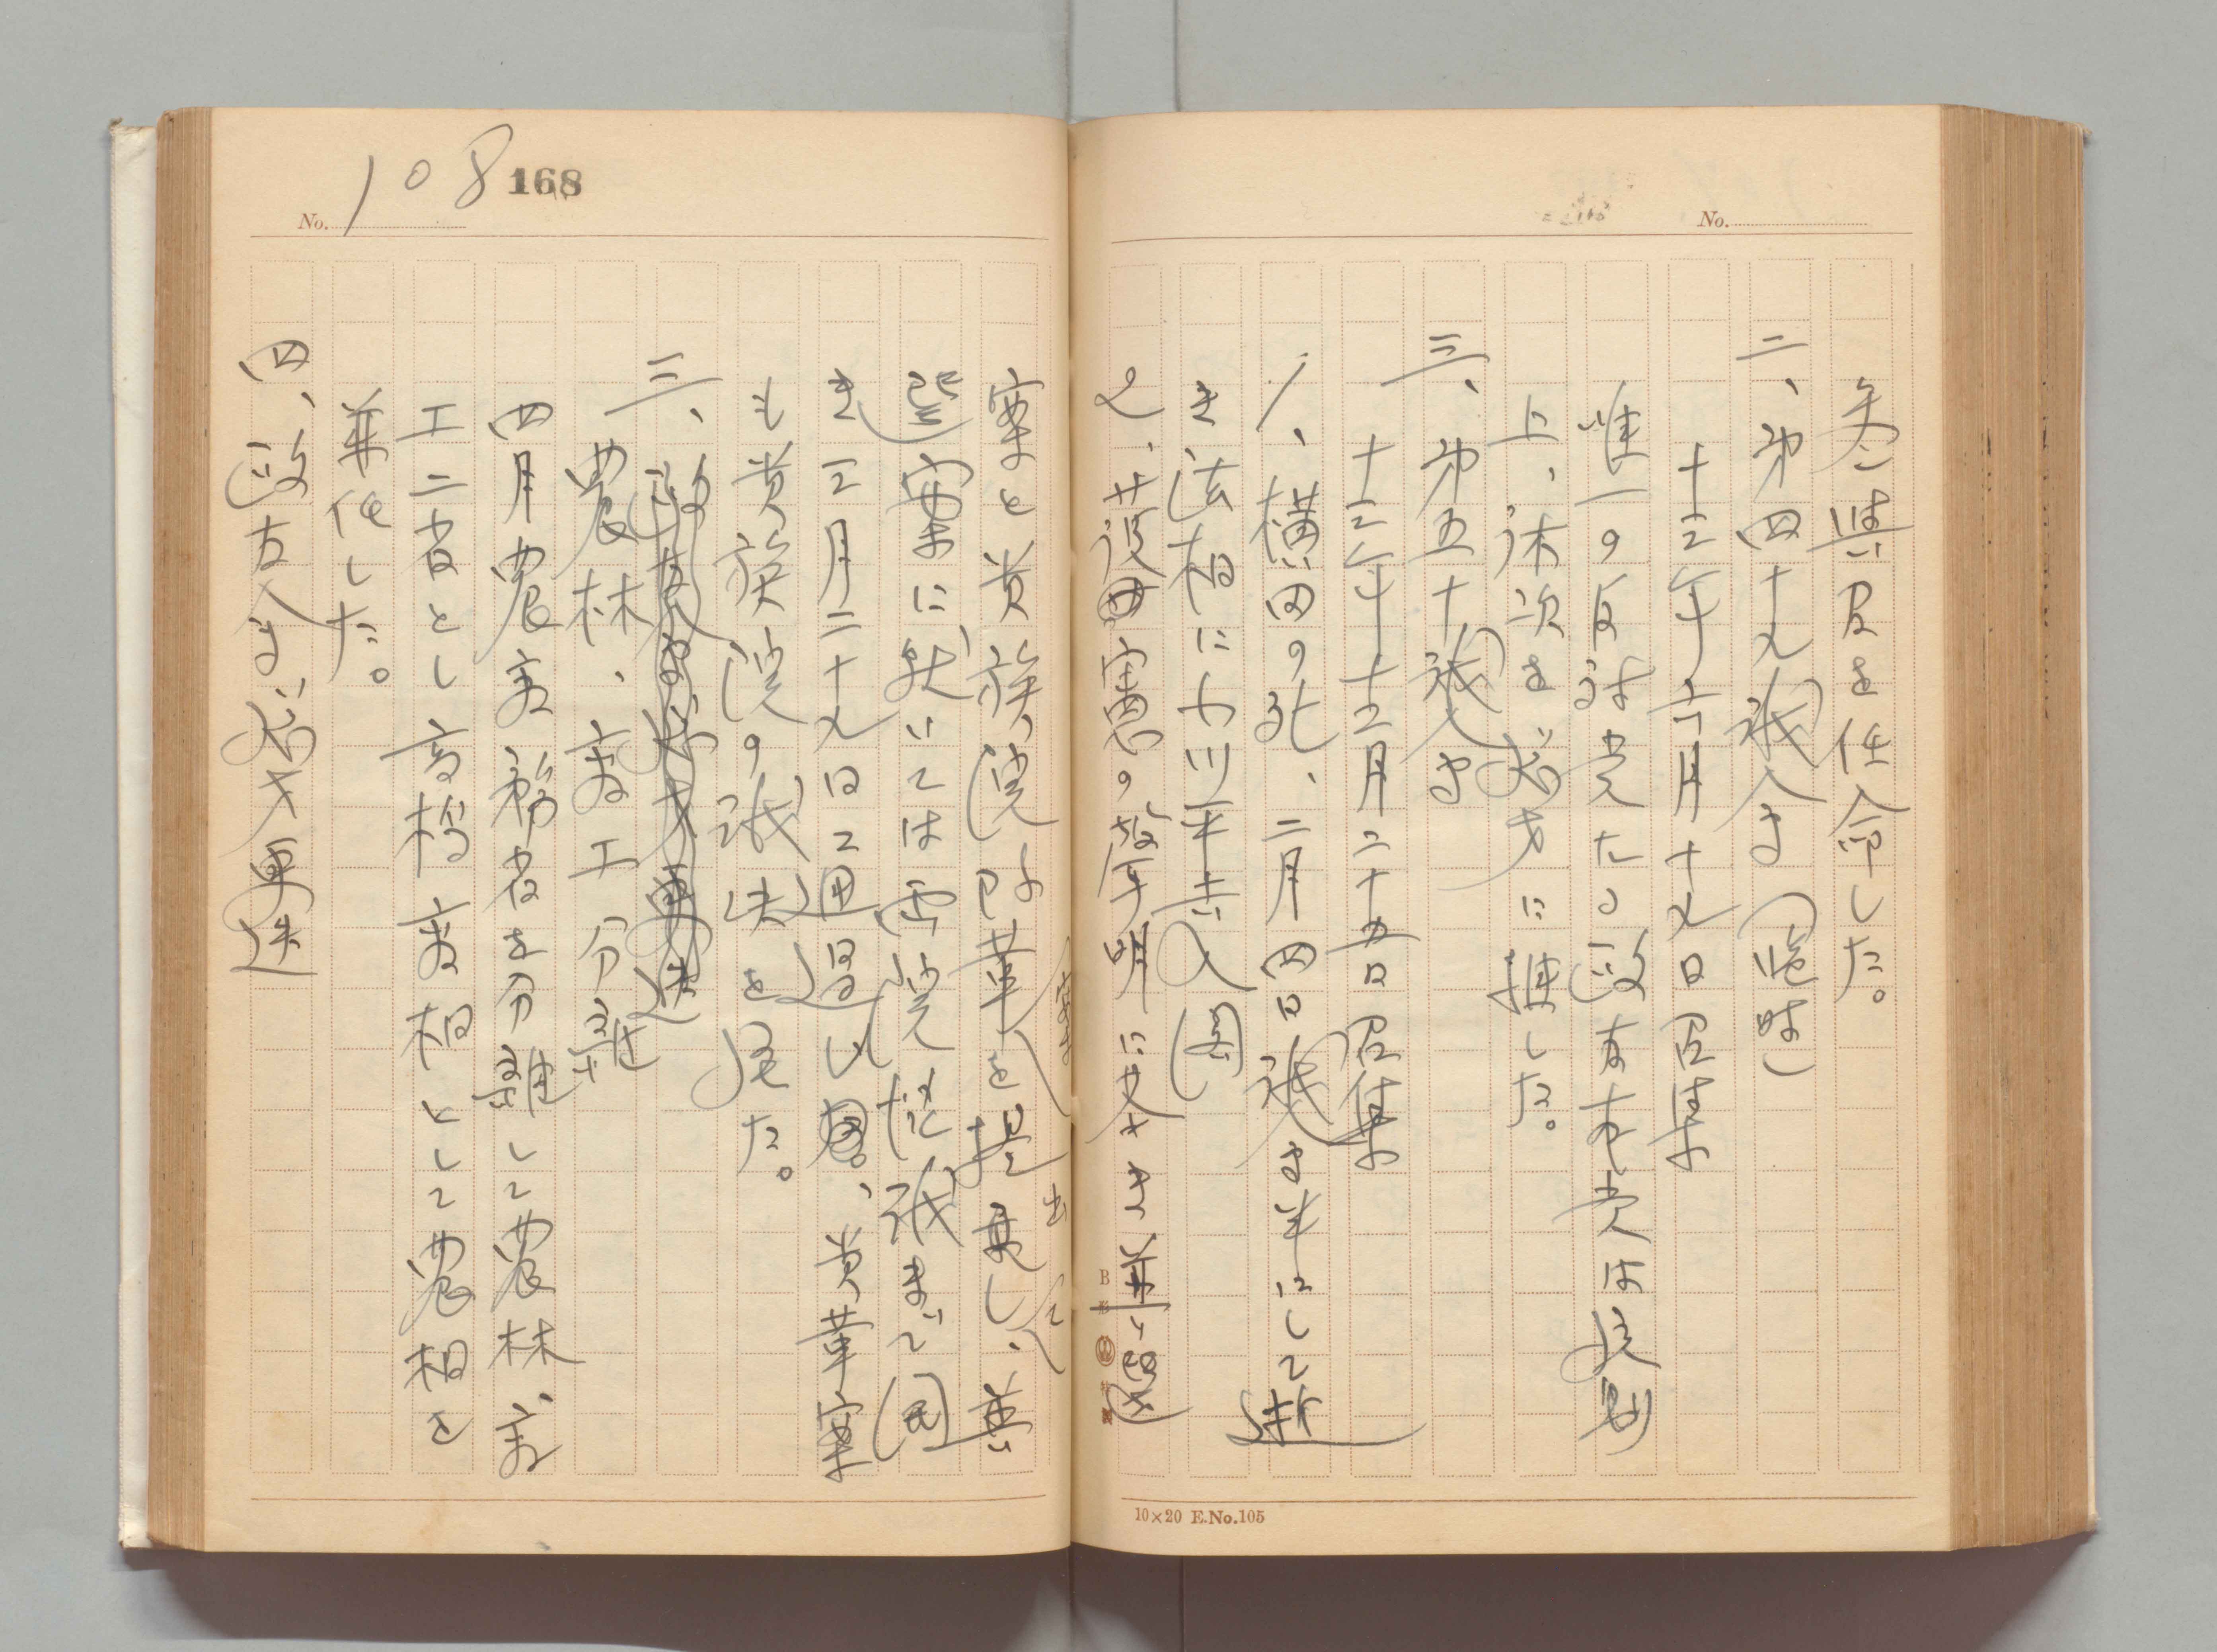 No.
委員を任命した。
二、第四十九議会（臨時）
十三年六月十九日召集
唯一の反対党たる政友本党は
上、床次を総裁に推した。
三、第五十議会
十三年十二月二十五日召集
1、横田の死、二月四日議会半にして逝
き法相に小川平吉入閣
2、の警明に
案と貴族院改革を提出し、普
選案に就いては両院協議まで開
き三月二十九日に通過し、貴革案
も貴族院の議決を見た。
三、農林、商工分離
四月農商務省を分離して農林、商
工二省とし高橋商相として農相を
兼任した。
四、政友会総裁更迭
No. 108
168
10×20 E.No.105